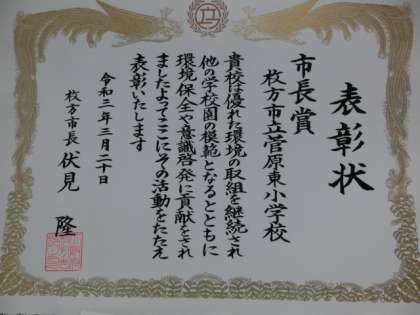 表彰状
市長賞
枚方市立菅原東小学校
貴校は優れた環境の取組を継続され
他の学校園の模範となるとともに
環境保全や意識啓発に貢献をされ
ましたよってここにその活動をたたえ
表彰いたします
令和三年三月二十日
枚方市長 伏見 隆